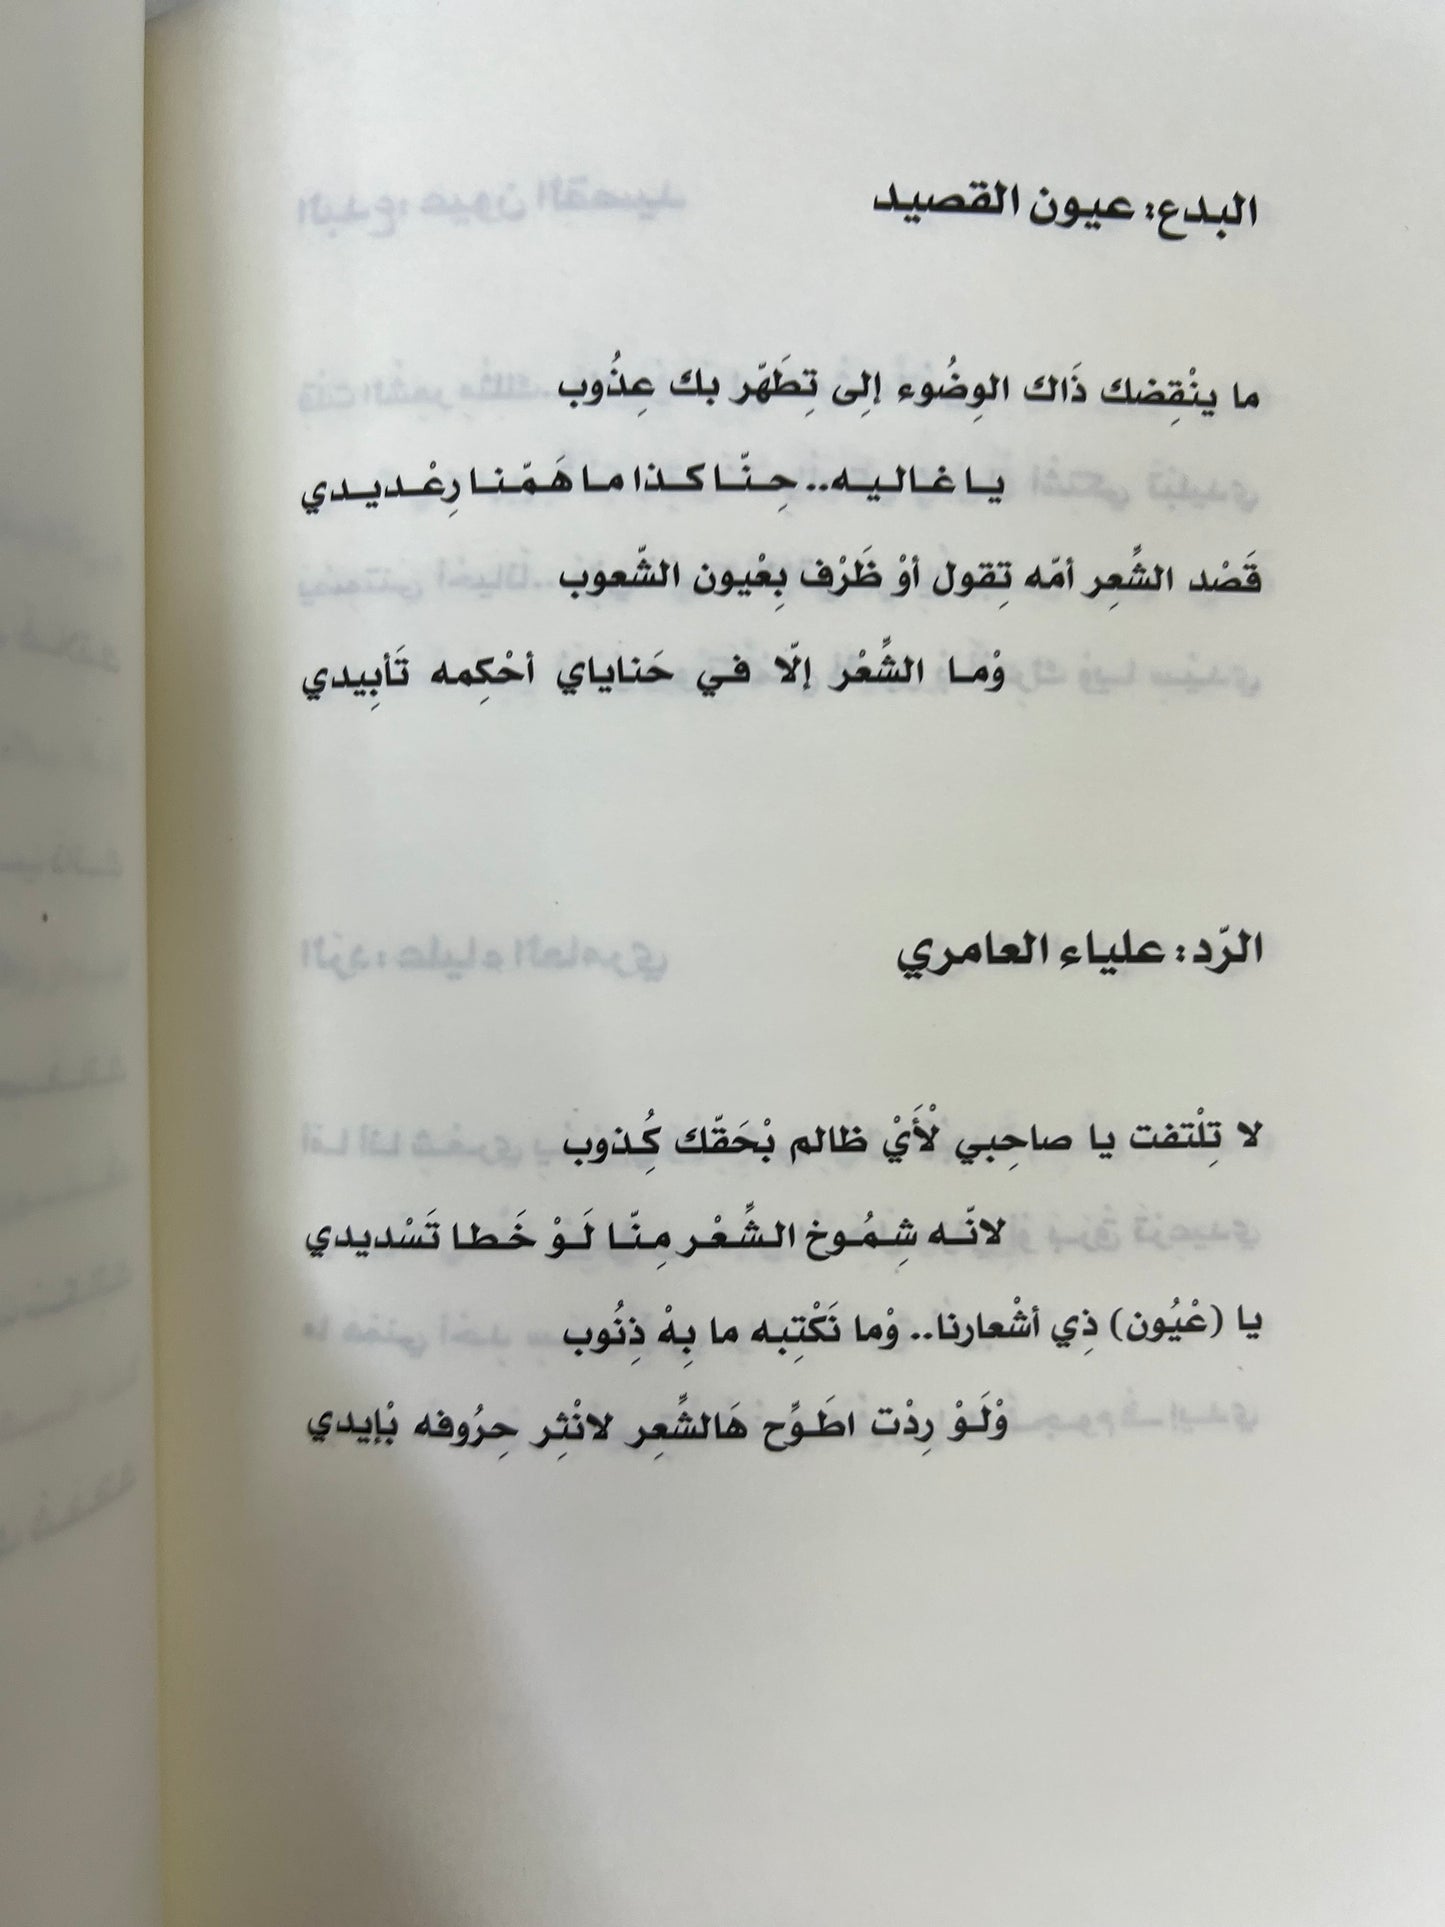 البدع: عيون القصيد
ما ينْقِضك ذَاك الوِضُوء إلِى تِطَهّر بك عِذُوب
يا غاليه.. حِنّا كذا ما هَمّنا رِعْديدي
قَصْد الشِّعِر أمّه تِقول أوْ ظَرْف بِعْيون الشّعوب
وْما الشِّعْر إلّا في حَناياي أحْكِمه تَأبِيدي
الرّد: علياء العامري
لا تِلْتفت يا صاحِبي لْأَيْ ظالم بْحَقّك كِذُوب
لانّه شِمُوخ الشِّعْر مِنّا لَوْ خَطا تَسْديدي
يا (عْيُون) ذِي أشْعارنا.. وْما نَكْتِبه ما بِهْ ذِنُوب
وْلَوْ رِدْت اطَوِّح هَالشِّعِر لانْثِر حِرُوفه بْإيدي